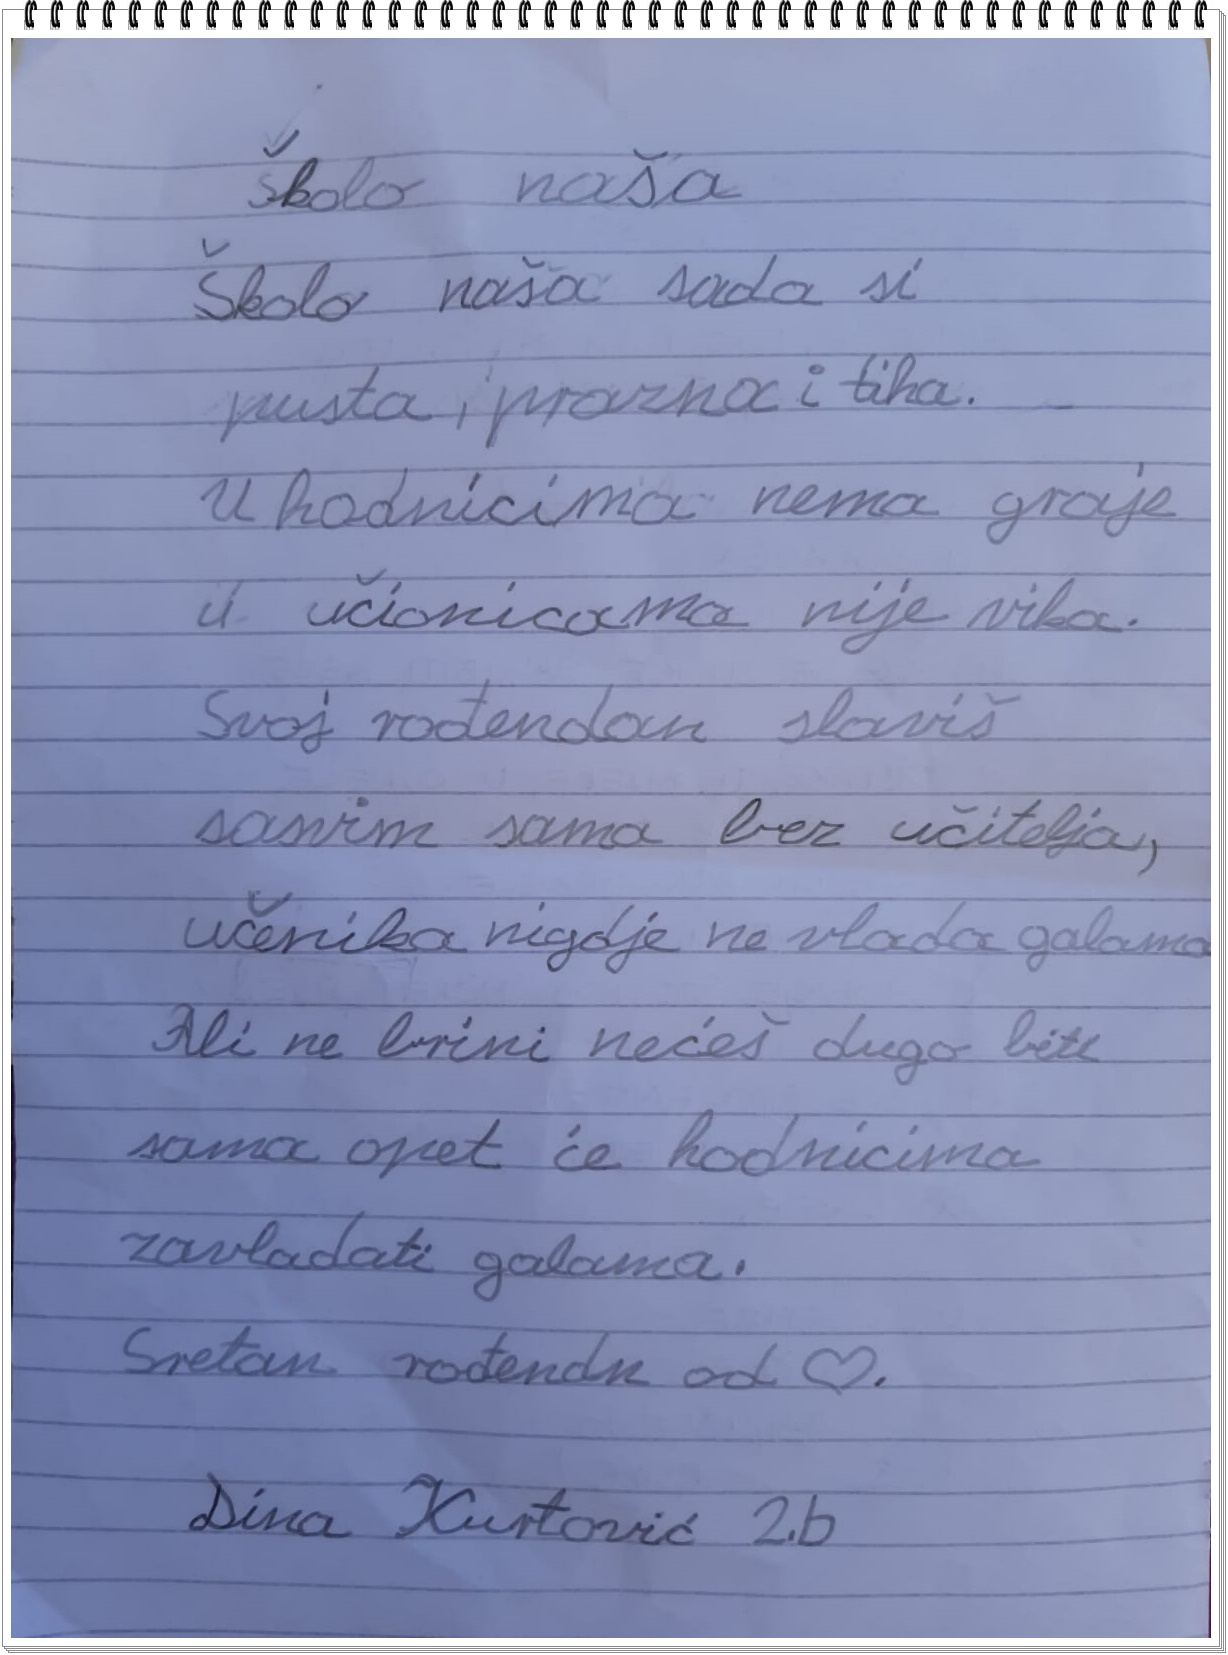 Školo naša
Školo naša sada si
pusta, prazna i tiha.
U hodnicima nema graje
u učionicama nije vika.
Svoj rođendan slaviš
sasvim sama bez učitelja,
učenika nigdje ne vlada galama
Ali ne brini nećeš dugo biti
sama opet će hodnicima
zavladati galama.
Sretan rođendn od ♡.
Dina Kurtović 2.b